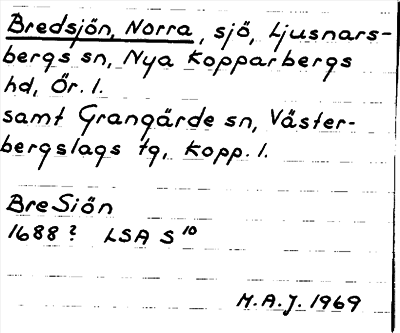 Bredsjön, Norra, sjö, Ljusnars-
bergs sn, Nya Kopparbergs
hd, Ör. l.
samt Grangärde sn, Väster-
bergslags tg, Kopp. l.
BreSiön
1688? LSA S 10
M.A.J. 1969